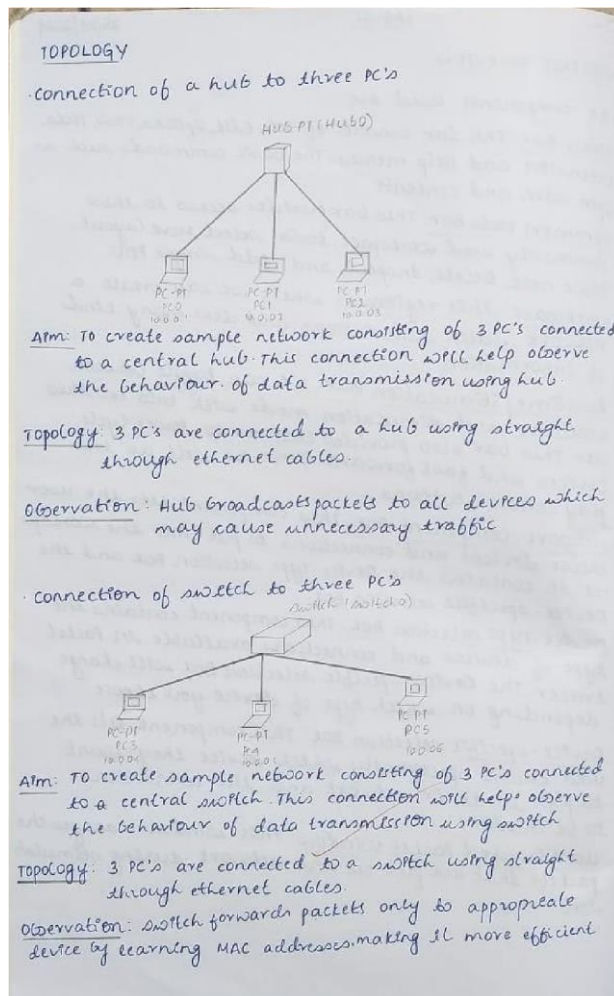 TOPOLOGY
. connection of a hub to three PC's
HUB-PT (HUB0)
PC-PT PC-PT PC-PT
PC0 PC1 PC2
10.0.03
Aim: To create sample network consisting of 3 PC's connected
to a central hub. This connection will help observe
the behaviour. of data transmission using hub.
Topology: 3 PC's are connected to a hub using straight
through ethernet cables.
Observation: Hub broadcasts packets to all devices which
may cause unnecessay traffic
. connection of switch to three PC's
switch (switch0)
PC-PT PC-PT PC PT
PC3 PC5
10.0.06
Aim: To create sample network consisting of 3 PC's connected
to a central switch. This connection will help observe
the behaviour of data transmission using switch
Topology: 3 PC's are connected to a switch using straight
through ethernet cables.
Observation: switch forwards packets only to appropreate
device by learning MAC addresses. making it more efficient